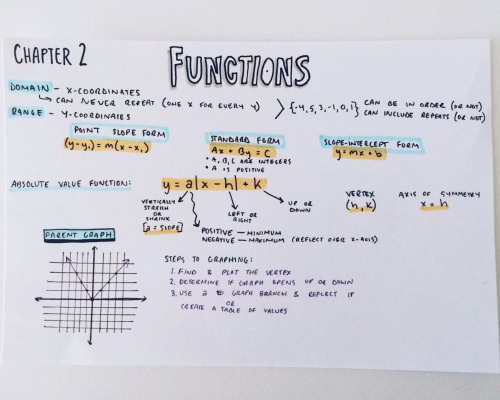 CHAPTER 2
FUNCTIONS
DOMAIN - X-COORDINATES
CAN NEVER REPEAT (ONE X FOR EVERY Y)
RANGE - Y-COORDINATES
{-4, 5, 3, -1, 0, 1}
CAN BE IN ORDER (OR NOT)
CAN INCLUDE REPEATS (OR NOT)
POINT SLOPE FORM
(y-y₁) = m(x-x₁)
STANDARD FORM
Ax + By = C
• A, B, C ARE INTEGERS
• A IS POSITIVE
SLOPE-INTERCEPT FORM
y = mx + b
ABSOLUTE VALUE FUNCTION:
y = a|x - h| + k
VERTICALLY
STRETCH
OR
SHRINK
[a = SLOPE]
LEFT OR
RIGHT
UP OR
DOWN
POSITIVE - MINIMUM
NEGATIVE - MAXIMUM (REFLECT OVER X-AXIS)
VERTEX
(h, k)
AXIS OF SYMMETRY
x = h
PARENT GRAPH
STEPS TO GRAPHING:
1. FIND & PLOT THE VERTEX
2. DETERMINE IF GRAPH OPENS UP OR DOWN
3. USE a TO GRAPH BRANCH & REFLECT IT
OR
CREATE A TABLE OF VALUES